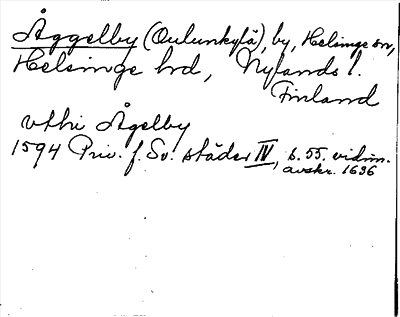 Åggelby (Oulunkylä), by, Helsinge sn,
Helsinge hd, Nylands l.
Finland
vthi Ågelby
1594 Priv. f. Sv. städer IV, s. 55. vidim.
avskr. 1636